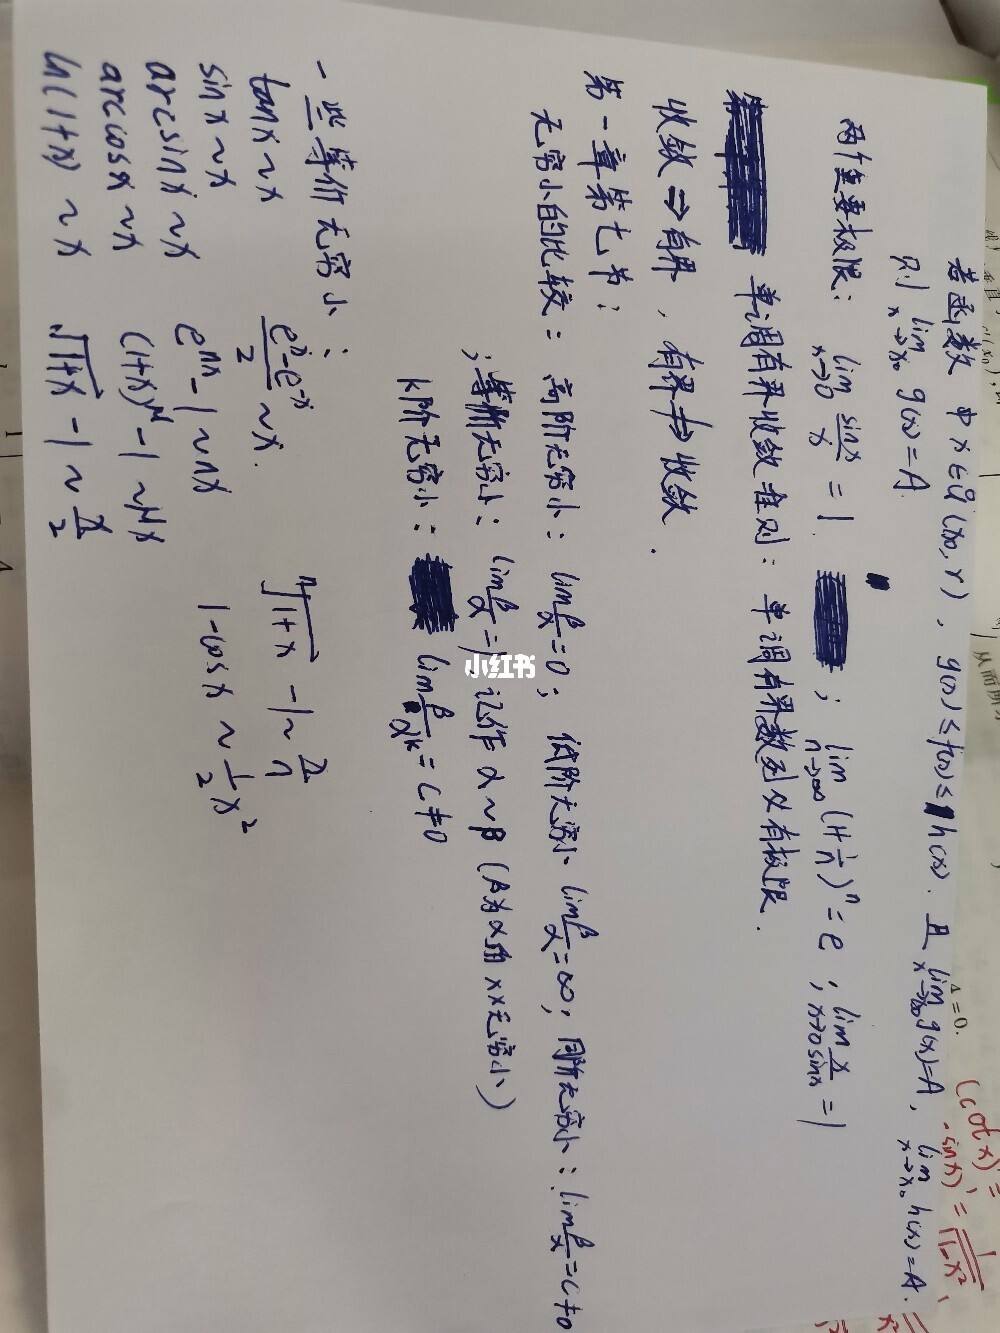 若函数 中 x∈Ů(x₀,r), g(x)≤f(x)≤h(x). 且 lim_{x→x₀} g(x)=A, lim_{x→x₀} h(x)=A.
则 lim_{x→x₀} g(x)=A.
两个重要极限: lim_{x→0} sinx/x = 1. ; lim_{n→∞} (1+1/n)ⁿ = e ; lim_{x→0} x/sinx = 1
单调有界收敛准则: 单调有界数列必有极限.
收敛⇒有界, 有界⇏收敛.
第一章第七节:
无穷小的比较: 高阶无穷小: lim β/α=0; 低阶无穷小 lim β/α=∞; 同阶无穷小: lim β/α=C≠0
; 等阶无穷小: lim β/α=1, 记作 α~β (β为α的xx无穷小)
k阶无穷小: lim β/αᵏ=C≠0
一些等价无穷小:
tanx~x (eˣ-e⁻ˣ)/2 ~x. ⁿ√(1+x) -1~ x/n
sinx~x eⁿˣ-1~nx 1-cosx ~ 1/2 x²
arcsinx~x (1+x)^μ-1 ~μx
arccosx~x √(1+x) -1 ~ x/2
ln(1+x) ~x
小红书
Δ=0.
(cotx)'=
-sinx)' =
从而